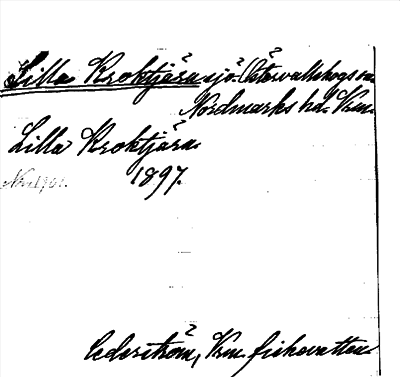 Lilla Kroktjärn sjö Östervallskogs sn
Nordmarks hd. Vrm.
Lilla Kroktjärn
1897.
Cederström, Vrm. fiskevatten